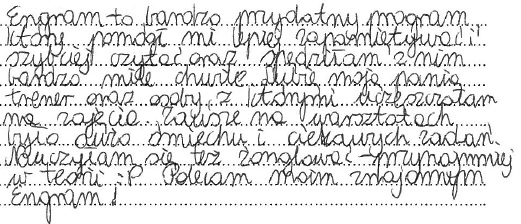 Engram to bardzo przydatny program
który pomógł mi lepiej zapamiętywać i
szybciej czytać oraz spędziłam z nim
bardzo miłe chwile. Lubię moją panią
trener oraz osoby z którymi uczęszczałam
na zajęcia. Zawsze na warsztatach
było dużo śmiechu i ciekawych zadań.
Nauczyłam się też żonglować - przynajmniej
w teorii :P Polecam moim znajomym
Engram!